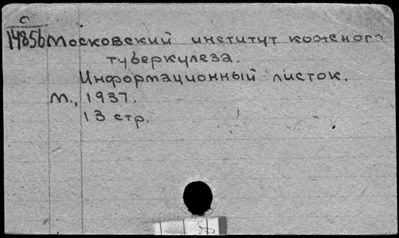 С
14856 Московский институт кожного
туберкулеза.
Информационный листок.
М., 1937.
13 стр.